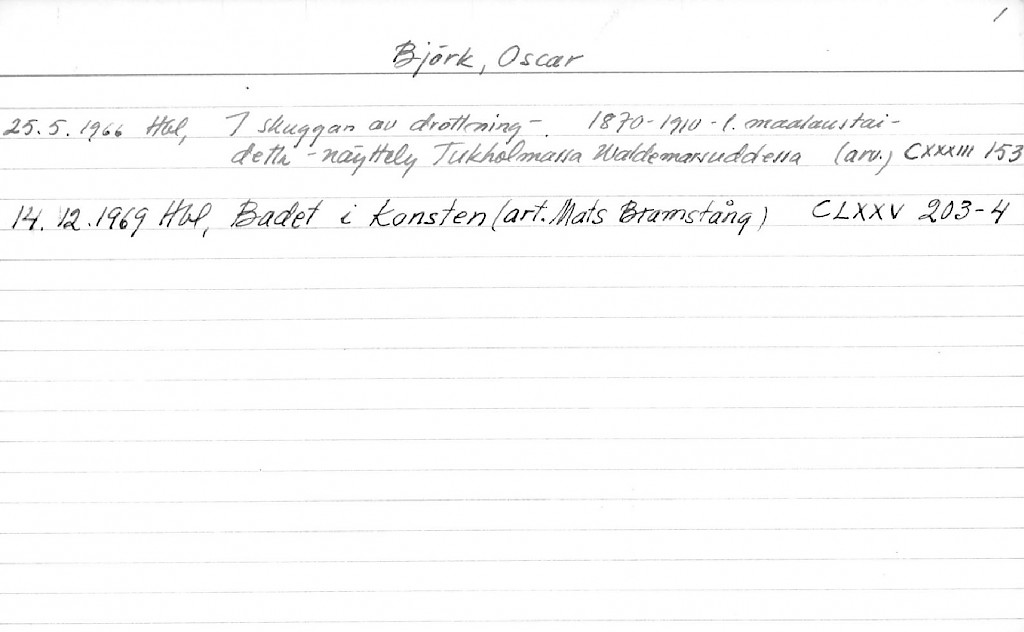 1
Björk, Oscar
25.5.1966 Hbl, I skuggan av drottning-. 1870-1910-l. maalaustai-
detta -näyttely Tukholmassa Waldemarsuddessa (arv.) CXXXIII 153
14.12.1969 Hbl, Badet i konsten (art. Mats Bramstång) CLXXV 203-4